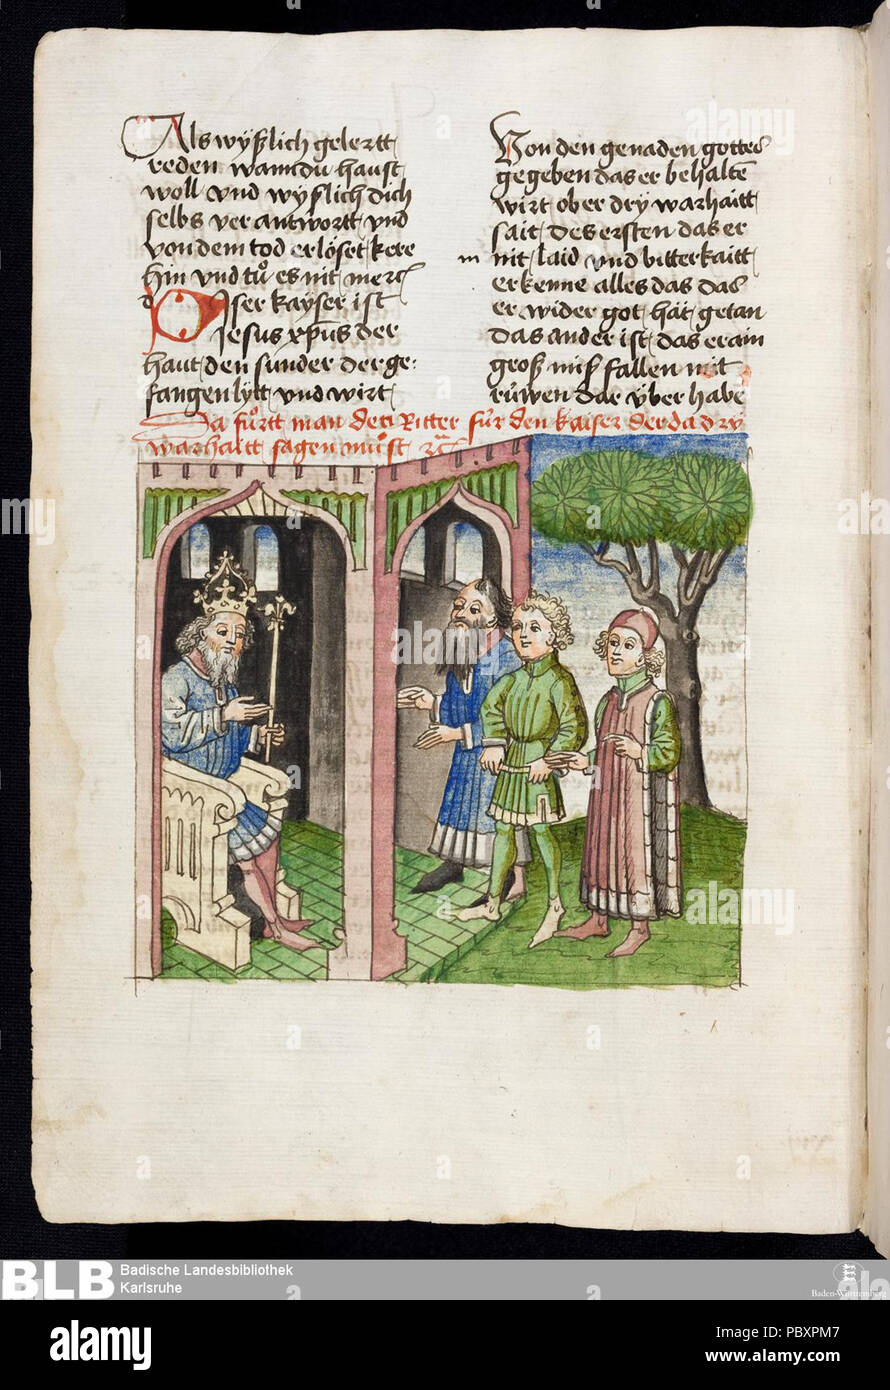 Als wyßlich gelertt
reden wann du haust
woll vnd wyßlich dich
selbs ver antwortt vnd
von dem tod erlöset kere
hin vnd tů es nit mer
Diser kayser ist
Jesus xp̄us der
haut den sunder der ge⸗
fangen lytt vnd wirt
Von den genaden gottes
gegeben das er behalten
wirt ob er dry warhaitt
sait des ersten das er
m nit laid vnd bitterkaitt
erkenne alles das das
er wider got hät getan
das ander ist das er ain
groß mißfallen mit
rüwen dar über habe
Da fůrtt man den Ritter für den kaiser der da dry
warhaitt sagen můst
BLB Badische Landesbibliothek
Karlsruhe
Baden-Württemberg
alamy
Image ID: PBXPM7
www.alamy.com